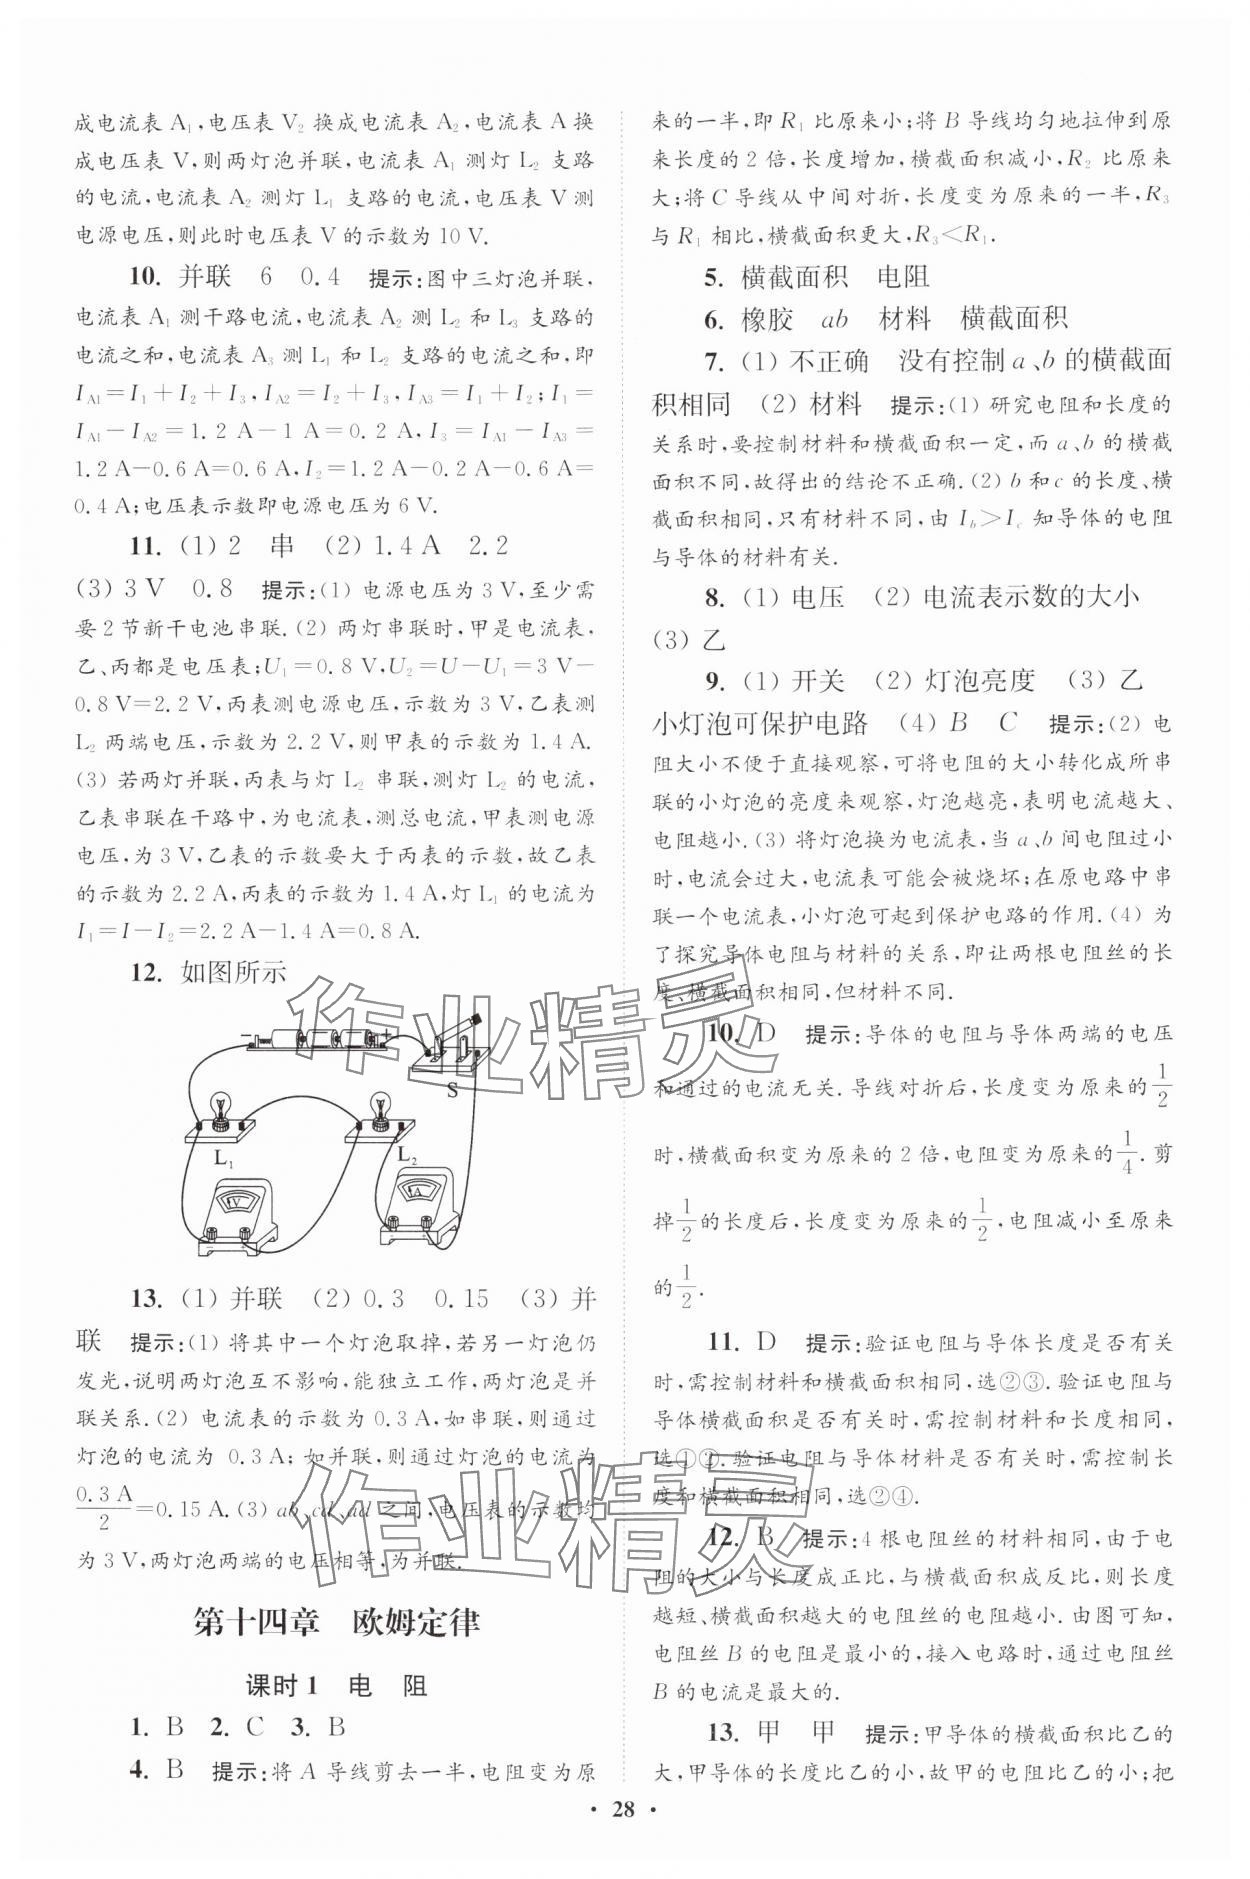 成电流表 A₁,电压表 V₂ 换成电流表 A₂,电流表 A 换
成电压表 V,则两灯泡并联,电流表 A₁ 测灯 L₂ 支路
的电流,电流表 A₂ 测灯 L₁ 支路的电流,电压表 V 测
电源电压,则此时电压表 V 的示数为 10 V.
10. 并联 6 0.4 提示:图中三灯泡并联,
电流表 A₁ 测干路电流,电流表 A₂ 测 L₂ 和 L₃ 支路的
电流之和,电流表 A₃ 测 L₁ 和 L₂ 支路的电流之和,即
I_A1=I₁+I₂+I₃,I_A2=I₂+I₃,I_A3=I₁+I₂;I₁=
I_A1-I_A2=1.2 A-1 A=0.2 A,I₃=I_A1-I_A3=
1.2 A-0.6 A=0.6 A,I₂=1.2 A-0.2 A-0.6 A=
0.4 A;电压表示数即电源电压为 6 V.
11. (1) 2 串 (2) 1.4 A 2.2
(3) 3 V 0.8 提示:(1) 电源电压为 3 V,至少需
要 2 节新干电池串联.(2) 两灯串联时,甲是电流表,
乙、丙都是电压表;U₁=0.8 V,U₂=U-U₁=3 V-
0.8 V=2.2 V,丙表测电源电压,示数为 3 V,乙表测
L₂ 两端电压,示数为 2.2 V,则甲表的示数为 1.4 A.
(3) 若两灯并联,丙表与灯 L₂ 串联,测灯 L₂ 的电流,
乙表串联在干路中,为电流表,测总电流,甲表测电源
电压,为 3 V,乙表的示数要大于丙表的示数,故乙表
的示数为 2.2 A,丙表的示数为 1.4 A,灯 L₁ 的电流为
I₁=I-I₂=2.2 A-1.4 A=0.8 A.
12. 如图所示
- +
S
L₁ L₂
V A
13. (1) 并联 (2) 0.3 0.15 (3) 并
联 提示:(1) 将其中一个灯泡取掉,若另一灯泡仍
发光,说明两灯泡互不影响,能独立工作,两灯泡是并
联关系.(2) 电流表的示数为 0.3 A,如串联,则通过
灯泡的电流为 0.3 A;如并联,则通过灯泡的电流为
0.3 A/2=0.15 A.(3) ab、cd、ad 之间,电压表的示数均
为 3 V,两灯泡两端的电压相等,为并联.
第十四章 欧姆定律
课时 1 电 阻
1. B 2. C 3. B
4. B 提示:将 A 导线剪去一半,电阻变为原
来的一半,即 R₁ 比原来小;将 B 导线均匀地拉伸到原
来长度的 2 倍,长度增加,横截面积减小,R₂ 比原来
大;将 C 导线从中间对折,长度变为原来的一半,R₃
与 R₁ 相比,横截面积更大,R₃<R₁.
5. 横截面积 电阻
6. 橡胶 ab 材料 横截面积
7. (1) 不正确 没有控制 a、b 的横截面
积相同 (2) 材料 提示:(1) 研究电阻和长度的
关系时,要控制材料和横截面积一定,而 a、b 的横截
面积不同,故得出的结论不正确.(2) b 和 c 的长度、横
截面积相同,只有材料不同,由 I_b>I_c 知导体的电阻
与导体的材料有关.
8. (1) 电压 (2) 电流表示数的大小
(3) 乙
9. (1) 开关 (2) 灯泡亮度 (3) 乙
小灯泡可保护电路 (4) B C 提示:(2) 电
阻大小不便于直接观察,可将电阻的大小转化成所串
联的小灯泡的亮度来观察,灯泡越亮,表明电流越大、
电阻越小.(3) 将灯泡换为电流表,当 a、b 间电阻过小
时,电流会过大,电流表可能会被烧坏;在原电路中串
联一个电流表,小灯泡可起到保护电路的作用.(4) 为
了探究导体电阻与材料的关系,即让两根电阻丝的长
度、横截面积相同,但材料不同.
10. D 提示:导体的电阻与导体两端的电压
和通过的电流无关.导线对折后,长度变为原来的 1/2
时,横截面积变为原来的 2 倍,电阻变为原来的 1/4.剪
掉 1/2 的长度后,长度变为原来的 1/2,电阻减小至原来
的 1/2.
11. D 提示:验证电阻与导体长度是否有关
时,需控制材料和横截面积相同,选②③.验证电阻与
导体横截面积是否有关时,需控制材料和长度相同,
选①②.验证电阻与导体材料是否有关时,需控制长
度和横截面积相同,选②④.
12. B 提示:4 根电阻丝的材料相同,由于电
阻的大小与长度成正比,与横截面积成反比,则长度
越短、横截面积越大的电阻丝的电阻越小.由图可知,
电阻丝 B 的电阻是最小的,接入电路时,通过电阻丝
B 的电流是最大的.
13. 甲 甲 提示:甲导体的横截面积比乙的
大,甲导体的长度比乙的小,故甲的电阻比乙的小;把
• 28 •
作业精灵
作业精灵